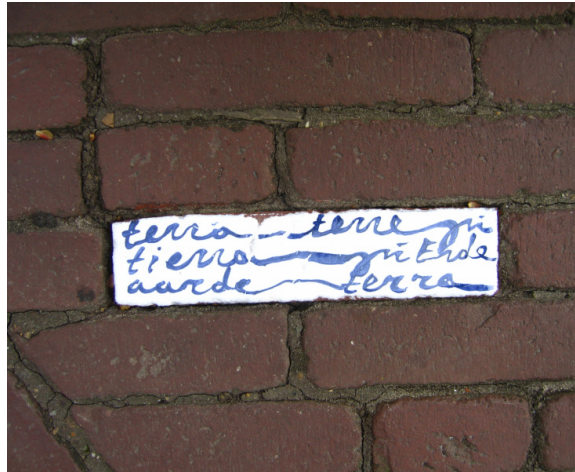 terra terre
tierra Erde
aarde terra